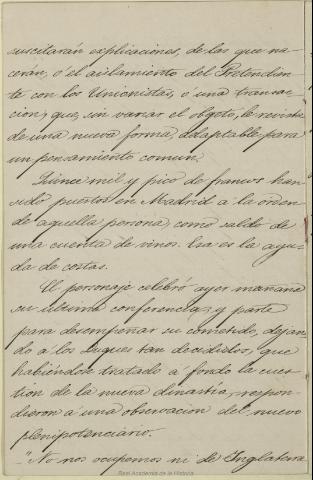 suscitarán explicaciones, de las que na-
cerán, ó el aislamiento del Pretendien-
te con los Unionistas, ó una transac-
cion, que, sin variar el objeto, le revista
de una nueva forma, adaptable para
un pensamiento comun.
Quince mil y pico de francos han
sido puestos en Madrid á la orden
de aquella persona, como saldo de
una cuenta de vinos. Esa es la ayu-
da de costas.
El personaje celebró ayer mañana
su última conferencia, y parte
para desempeñar su cometido, dejan-
do á los Duques tan decididos, que
habiéndose tratado á fondo la cues-
tion de la nueva dinastía, respon-
dieron á una observacion del nuevo
plenipotenciario.
"No nos ocupemos ni de Inglaterra
Real Academia de la Historia